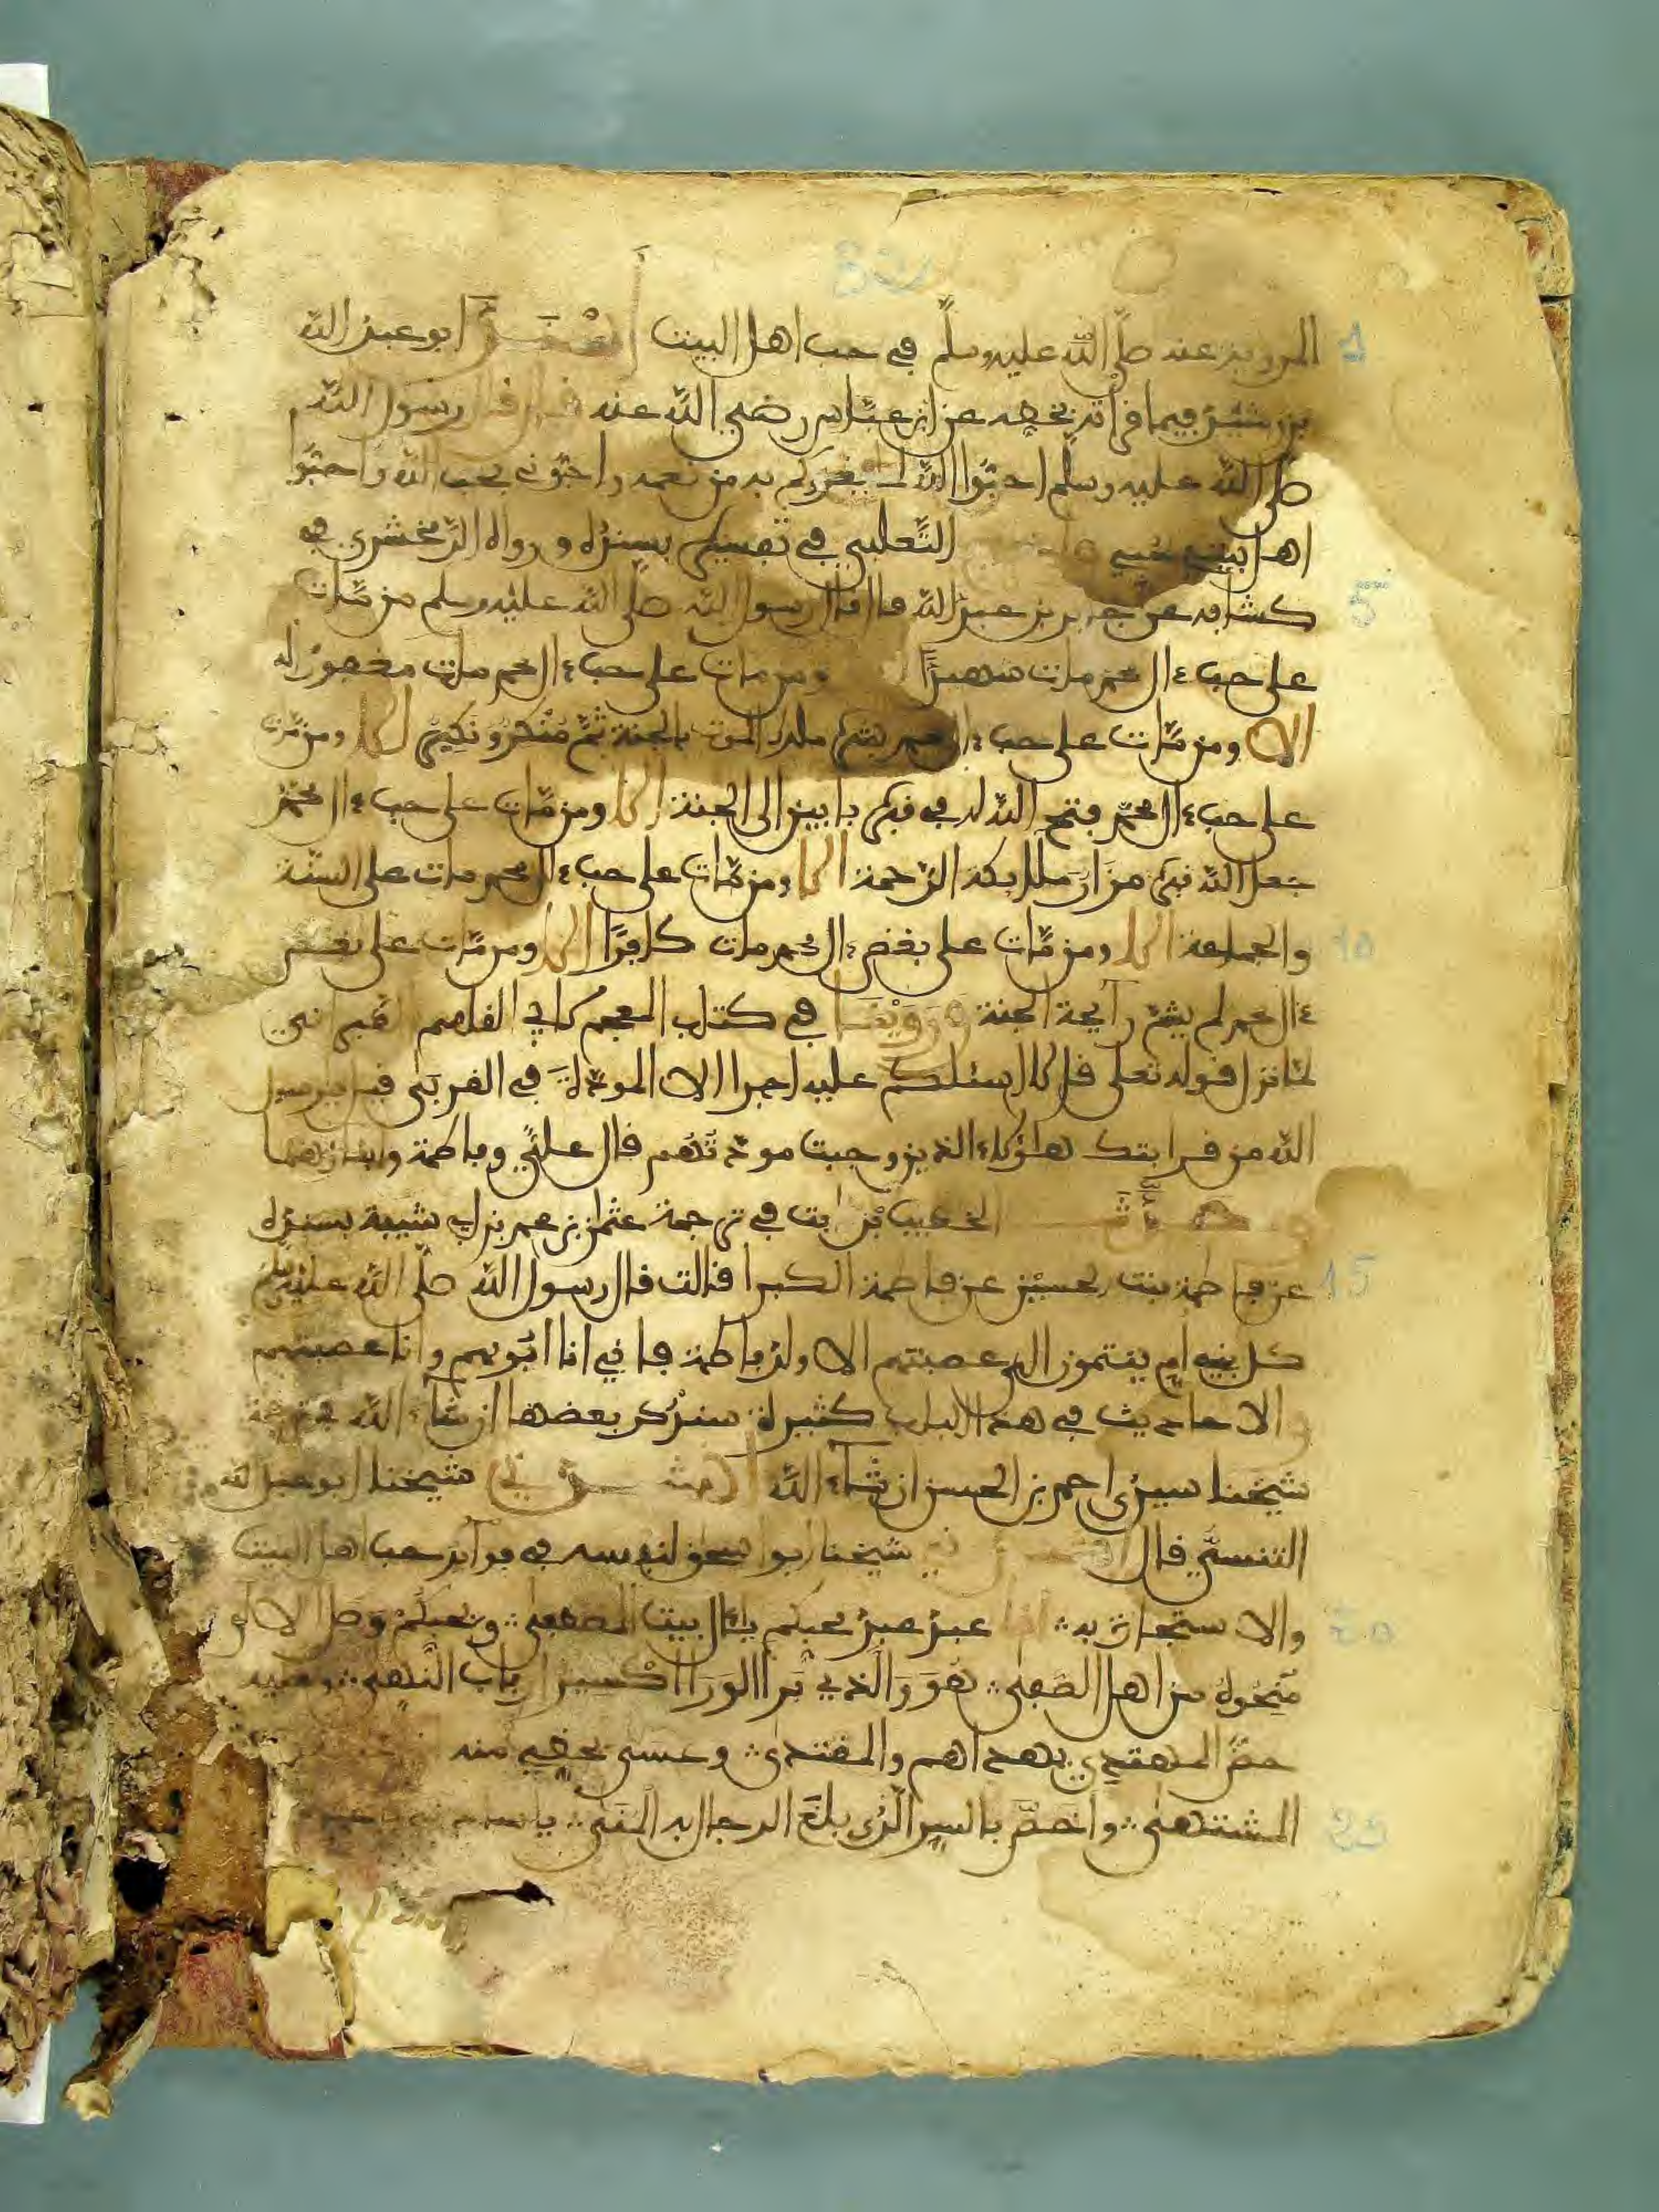 المروية عنه صلى الله عليه وسلم في حب اهل البيت ابو عبد الله
فيما قرأته بخطه عن ابن عباس رضي الله عنه قال قال رسول الله
صلى الله عليه وسلم احبوا الله لما يغذوكم به من نعمه واحبوني بحب الله واحبوا
اهل بيتي الثعلبي في تفسيره بسنده ورواه الزمخشري في
كشافه عن جرير بن عبد الله قال قال رسول الله صلى الله عليه وسلم من مات
على حب ءال محمد مات شهيدًا ومن مات على حب ءال محمد مات مغفورًا له
الا ومن مات على حب ءال محمد بشره ملك الموت بالجنة ثم منكر ونكير الا ومن مات
على حب ءال محمد فتح الله له في قبره بابين الى الجنة الا ومن مات على حب ءال محمد
جعل الله قبره مزار ملايكة الرحمة الا ومن مات على حب ءال محمد مات على السنة
والجماعة الا ومن مات على بغض ءال محمد مات كافرًا الا ومن مات على بغض
ءال محمد لم يشم رايحة الجنة وروينا في كتاب المعجم لابي القاسم الطبراني
لما نزل قوله تعلى قل لا اسئلكم عليه اجرا الا المودة في القربى قيل يا رسول
الله من قرابتك هاؤلاء الذين وجبت مودتهم قال علي وفاطمة وابناهما
الخطيب بن ثابت في ترجمة عثمان بن محمد بن ابي شيبة بسنده
عن فاطمة بنت الحسين عن فاطمة الكبرا قالت قال رسول الله صلى الله عليه وسلم
كل بني ام ينتمون الى عصبتهم الا ولد فاطمة فاني انا ابوهم وانا عصبتهم
والاحاديث في هذا الباب كثيرة سنذكر بعضها ان شاء الله في ترجمة
شيخنا سيدي احمد بن الحسن ان شاء الله انشدني شيخنا ابو عبد الله
التنسي قال انشدني شيخنا ابو اسحق لنفسه في فوائد حب اهل البيت
والاستجارة به انا عبد عبد محبكم يا ءال بيت المصطفى ومحبكم وصل الالو
منحوه من اهل الصفى هو والذي برا الورا اكسير ارباب النهى وعليه
حض المهتدي بهداهم والمقتدى وعسى يحظيه منه
المشتهى واخص بالسر الذي بلغ الرجال به المنى